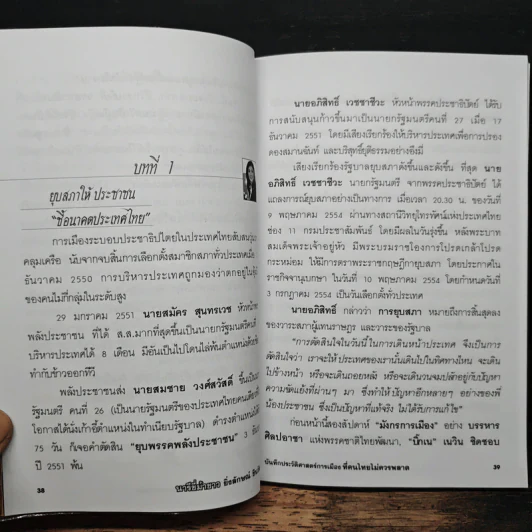 บทที่ 1
ยุบสภาให้ ประชาชน
"ชี้อนาคตประเทศไทย"
การเมืองระบอบประชาธิปไตยในประเทศไทยสับสนวุ่น
คลุมเครือ นับจากจบสิ้นการเลือกตั้งสมาชิกสภาทั่วประเทศเมื่อ
ธันวาคม 2550 การบริหารประเทศถูกมองว่าตกอยู่ใน
ของคนไม่กี่กลุ่มในระดับสูง
29 มกราคม 2551 นายสมัคร สุนทรเวช หัวหน้า
พลังประชาชน ที่ได้ ส.ส.มากที่สุดขึ้นเป็นนายกรัฐมนตรี
บริหารประเทศได้ 8 เดือน มีอันเป็นไปโดนไล่พ้นตำแหน่งด้วย
ทำกับข้าวออกทีวี
พลังประชาชนส่ง นายสมชาย วงศ์สวัสดิ์ ขึ้นเป็น
รัฐมนตรี คนที่ 26 (เป็นนายกรัฐมนตรีของประเทศไทยคนเดียว
โอกาสได้นั่งเก้าอี้ตำแหน่งในทำเนียบรัฐบาล) ดำรงตำแหน่ง
75 วัน ก็เจอคำตัดสิน "ยุบพรรคพลังประชาชน" 3
ปี 2551 พ้น
38
นารีขี่ม้าขาว ยิ่งลักษณ์
นายอภิสิทธิ์ เวชชาชีวะ หัวหน้าพรรคประชาธิปัตย์ ได้รับ
การสนับสนุนก้าวขึ้นมาเป็นนายกรัฐมนตรีคนที่ 27 เมื่อ 17
ธันวาคม 2551 โดยมีเสียงเรียกร้องให้บริหารประเทศเพื่อการปรอง
ดองสมานฉันท์ และบริสุทธิ์ยุติธรรมอย่างอึงมี่
เสียงเรียกร้องรัฐบาลยุบสภาดังขึ้นและดังขึ้น ที่สุด นาย
อภิสิทธิ์ เวชชาชีวะ นายกรัฐมนตรี จากพรรคประชาธิปัตย์ ได้
แถลงการณ์ยุบสภาอย่างเป็นทางการ เมื่อเวลา 20.30 น. ของวันที่
9 พฤษภาคม 2554 ผ่านทางสถานีวิทยุโทรทัศน์แห่งประเทศไทย
ช่อง 11 กรมประชาสัมพันธ์ โดยมีผลในวันรุ่งขึ้น หลังพระบาท
สมเด็จพระเจ้าอยู่หัว มีพระบรมราชโองการโปรดเกล้าโปรด
กระหม่อม ให้มีการตราพระราชกฤษฎีกายุบสภา โดยประกาศใน
ราชกิจจานุเบกษา ในวันที่ 10 พฤษภาคม 2554 โดยกำหนดวันที่
3 กรกฎาคม 2554 เป็นวันเลือกตั้งทั่วประเทศ
นายอภิสิทธิ์ กล่าวว่า การยุบสภา หมายถึงการสิ้นสุดลง
ของวาระสภาผู้แทนราษฎร และวาระของรัฐบาล
"การตัดสินใจในวันนี้ ในการเดินหน้าประเทศ จึงเป็นการ
ตัดสินใจว่า เราจะให้ประเทศของเรานั้นเดินไปในทิศทางไหน จะเดิน
ไปข้างหน้า หรือจะเดินถอยหลัง หรือจะเดินวนจมปลักอยู่กับปัญหา
ความขัดแย้งที่ผ่านๆ มา ซึ่งทำให้ปัญหาอีกหลายๆ อย่างของพี่
น้องประชาชน ซึ่งเป็นปัญหาที่แท้จริง ไม่ได้รับการแก้ไข"
ก่อนหน้านี้สองสัปดาห์ "มังกรการเมือง" อย่าง บรรหาร
ศิลปอาชา แห่งพรรคชาติไทยพัฒนา, "บิ๊กเน" เนวิน ชิดชอบ
บันทึกประวัติศาสตร์การเมือง ที่คนไทยไม่ควรพลาด
39